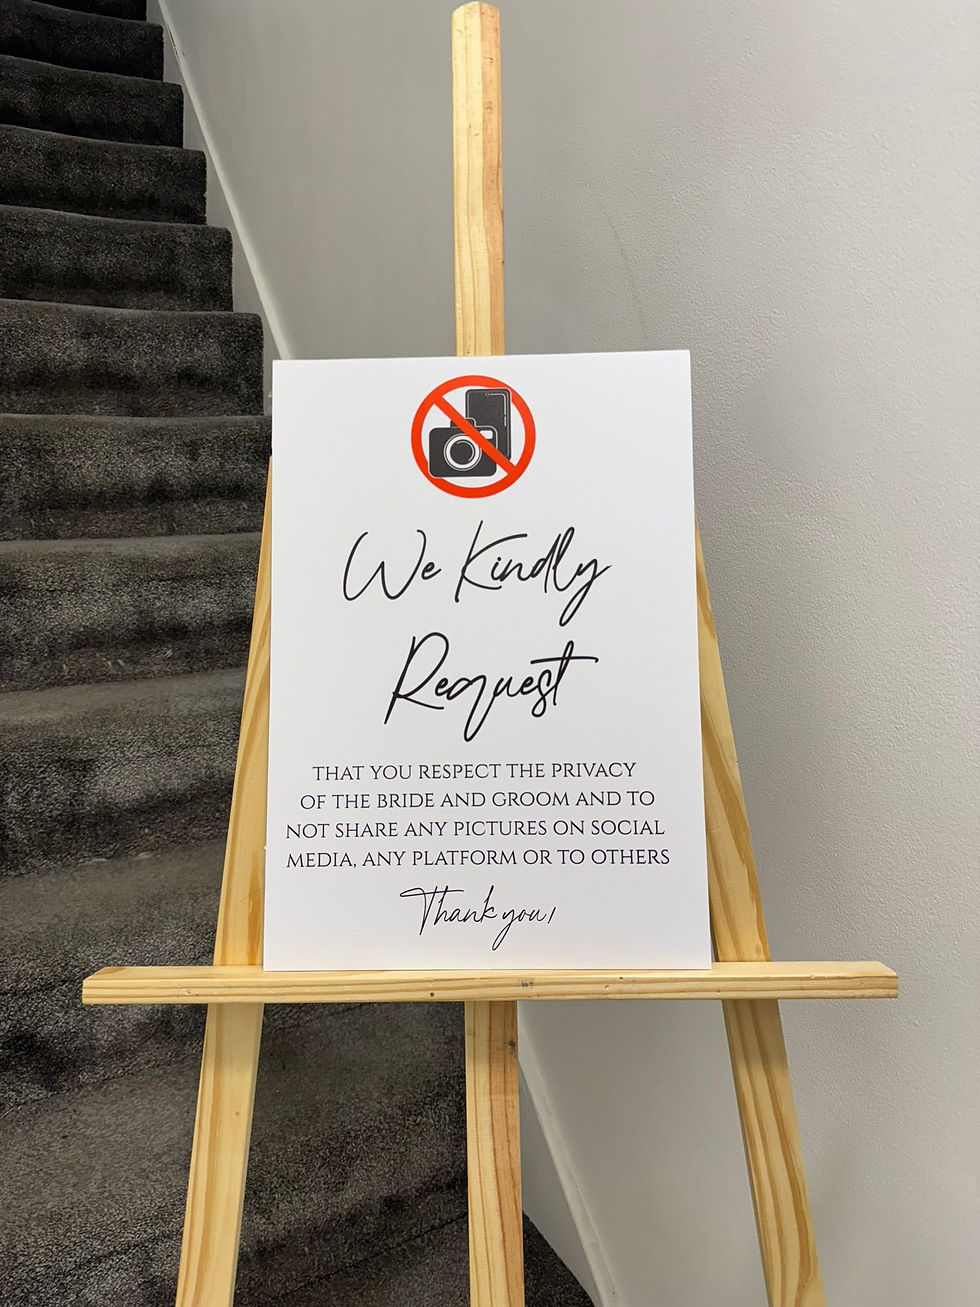 We Kindly
Request
THAT YOU RESPECT THE PRIVACY
OF THE BRIDE AND GROOM AND TO
NOT SHARE ANY PICTURES ON SOCIAL
MEDIA, ANY PLATFORM OR TO OTHERS
Thank you!